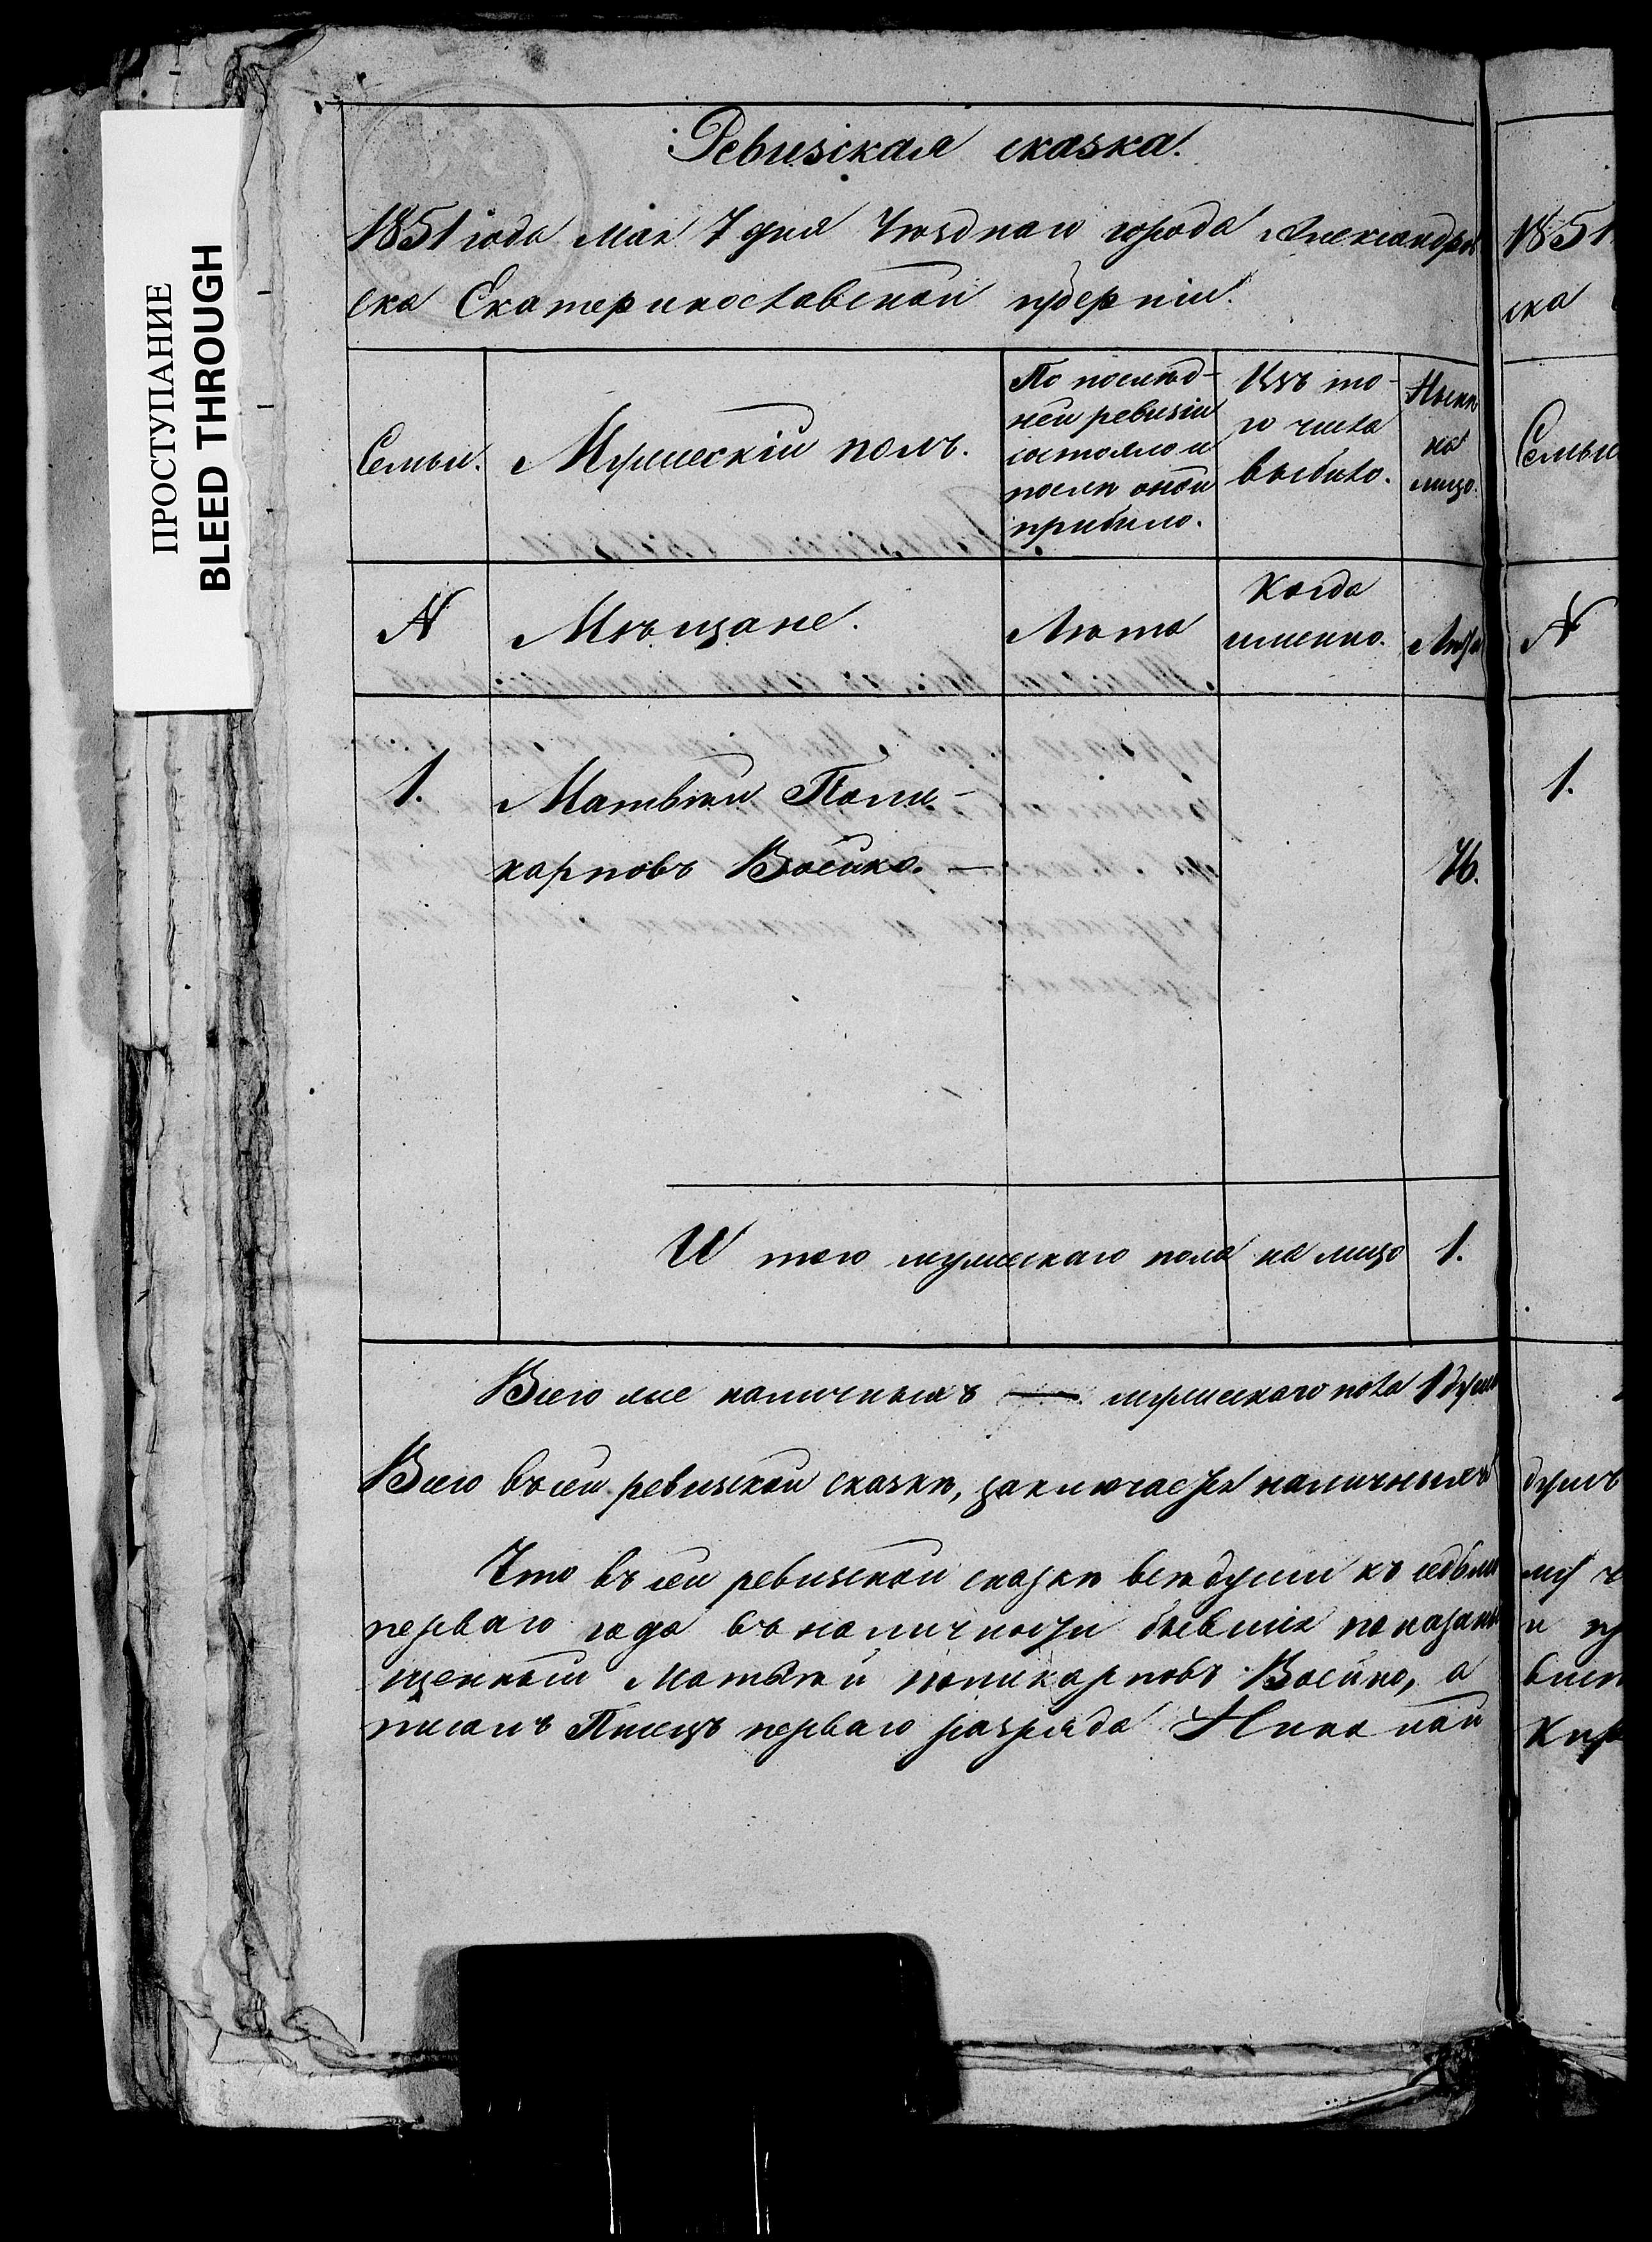 ПРОСТУПАНИЕ
BLEED THROUGH
Ревизская сказка.
1851 года Мая 7 дня Уѣзднаго города Александров
ска Екатеринославской губерніи.
Семьи.
Мужескій полъ.
По послѣд-
ней ревизіи
состояло и
послѣ оной
прибыло.
Изъ то-
го числа
выбыло.
Нынѣ
на
лицо.
N
Мѣщане.
Лѣта
Когда
именно.
Лѣта
1.
Матвѣй Поли-
карповъ Войнко. —
76.
И того мужескаго пола на лицо 1.
Всего же наличныхъ мужескаго пола 1 душа
Всего въ сей ревизской сказкѣ, заключается наличныхъ
Что въ сей ревизской сказкѣ всѣ души къ седьмо
перваго года въ наличности бывшія показаны
щенный Матвѣй Поликарповъ Войнко, а
писалъ Писецъ перваго разряда Николай
1851
ска
Семьи
N
1.
душъ
му
и